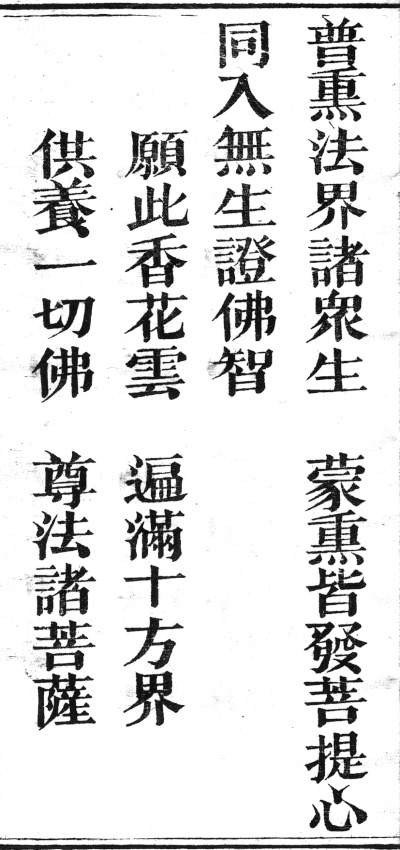 普熏法界諸眾生　蒙熏皆發菩提心
同入無生證佛智
願此香花雲　遍滿十方界
供養一切佛　尊法諸菩薩